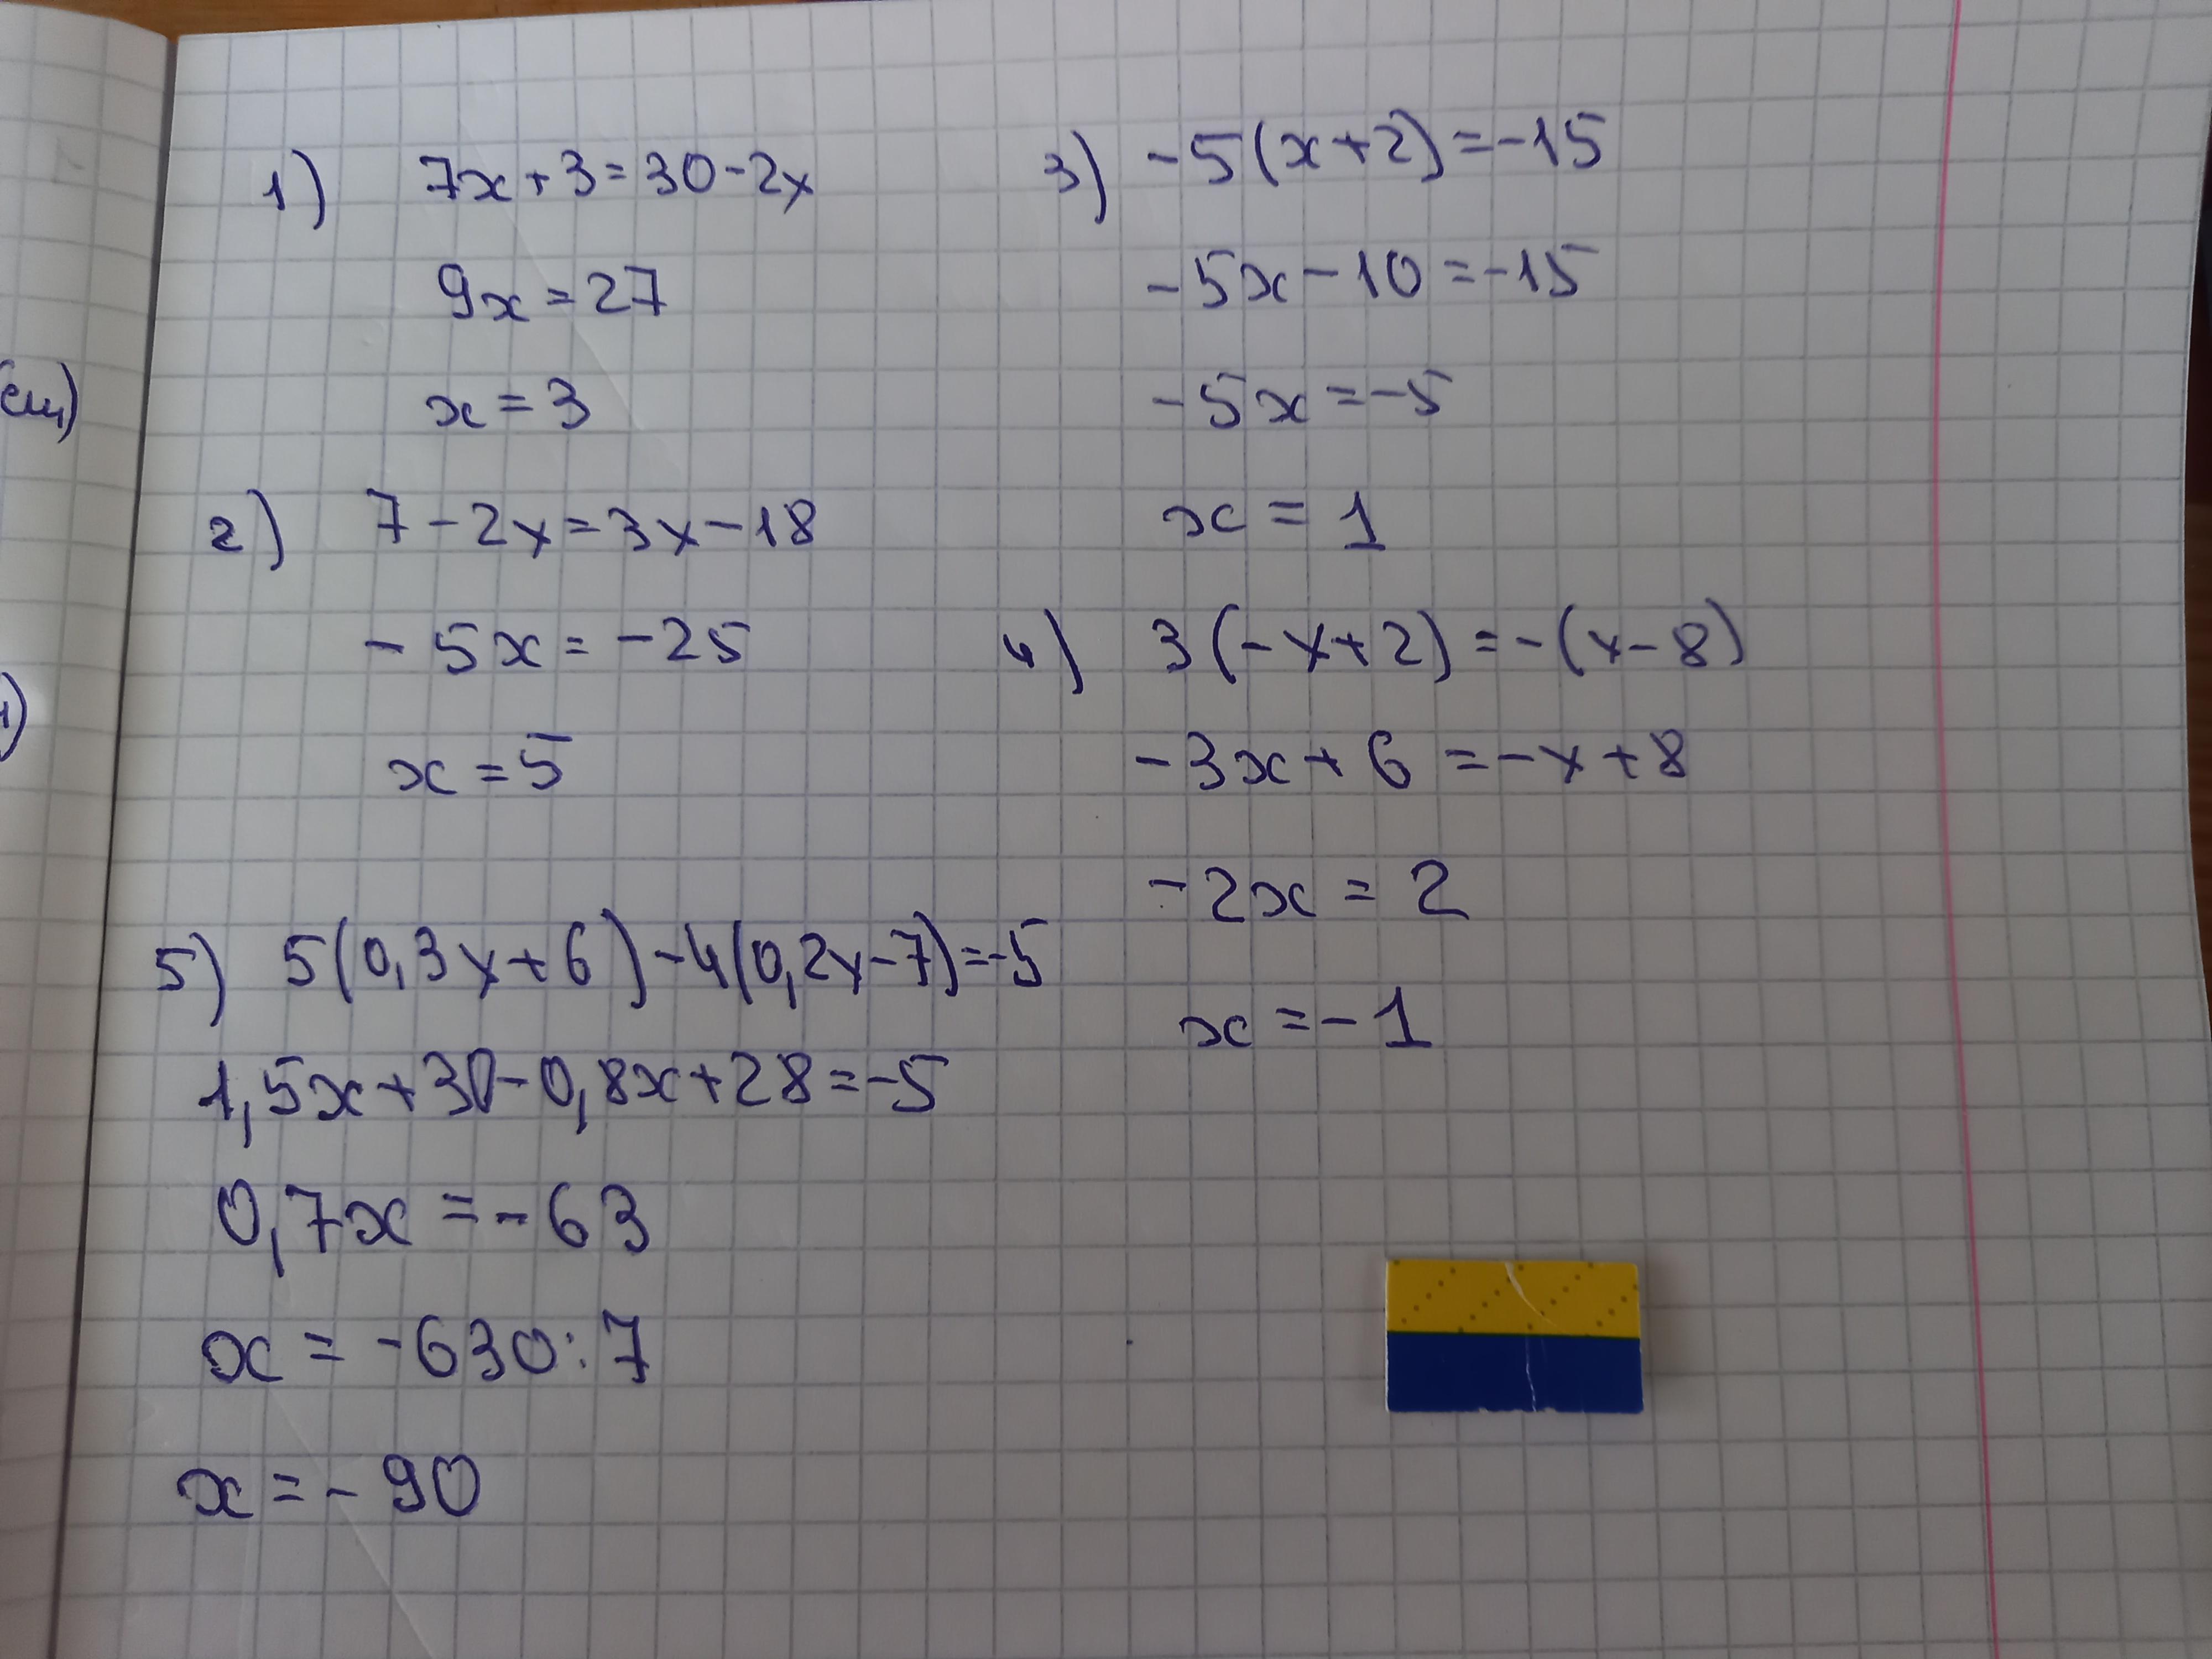 1) 7x+3=30-2x
9x=27
x=3
2) 7-2x=3x-18
-5x=-25
x=5
5) 5(0,3x+6)-4(0,2x-7)=-5
1,5x+30-0,8x+28=-5
0,7x=-63
x=-630:7
x=-90
3) -5(x+2)=-15
-5x-10=-15
-5x=-5
x=1
4) 3(-x+2)=-(x-8)
-3x+6=-x+8
-2x=2
x=-1